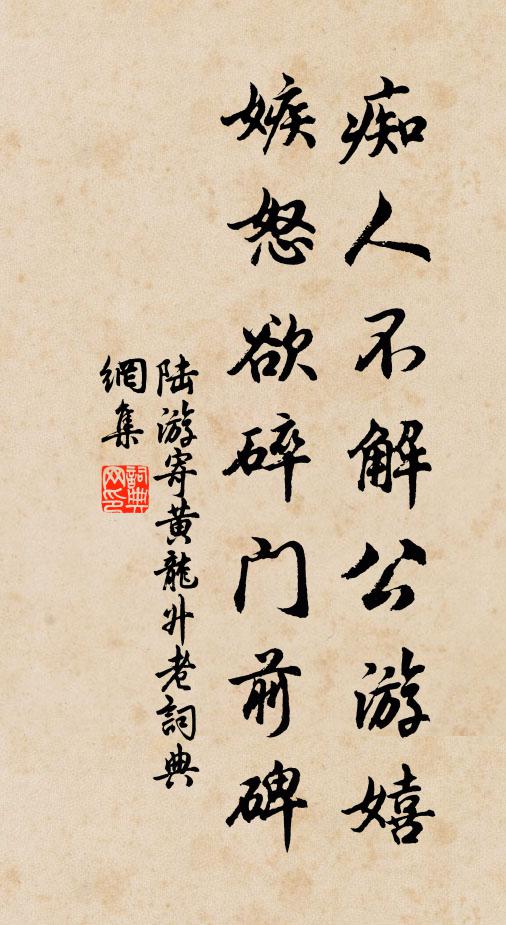 痴人不解公游嬉
嫉怒欲碎门前碑
陆游寄黄龙升老詞典
網集
詞典
网印